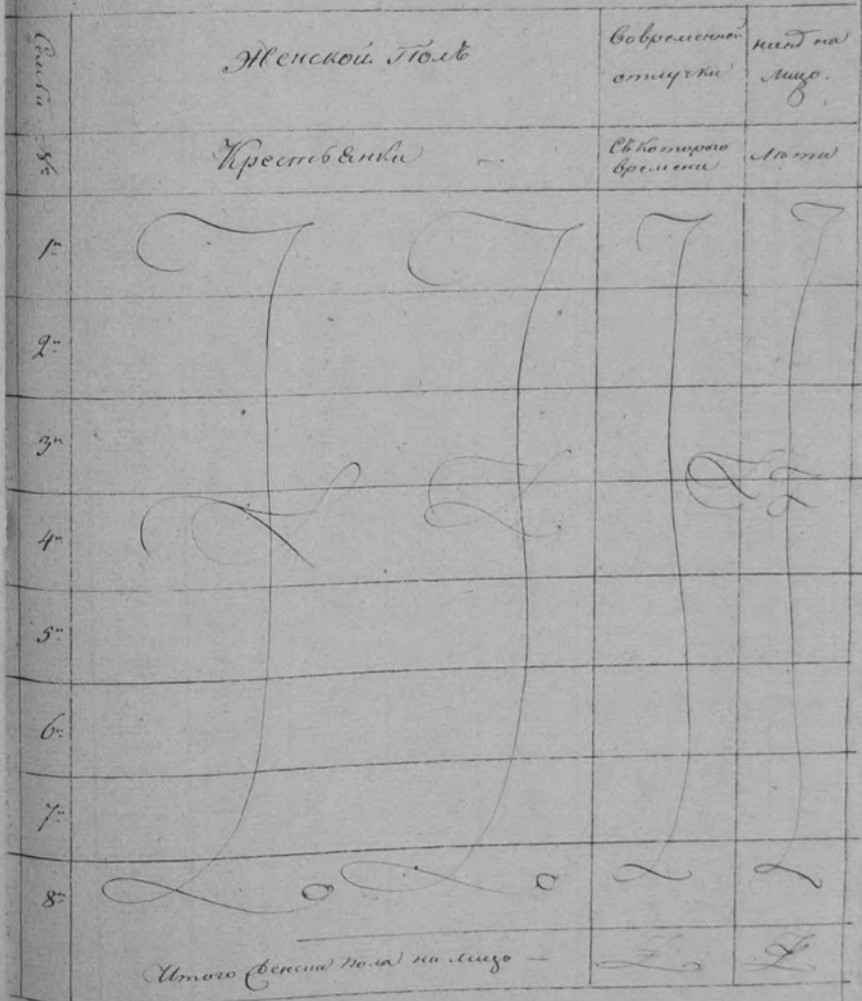 Семьи №
Женской Полъ
Во временной
отлучки
нынѣ на
лицо.
Крестьянки
Съ котораго
времени
Лѣта
1й
2й
3й
4й
5й
6й
7й
8й
Итого женска пола на лицо —